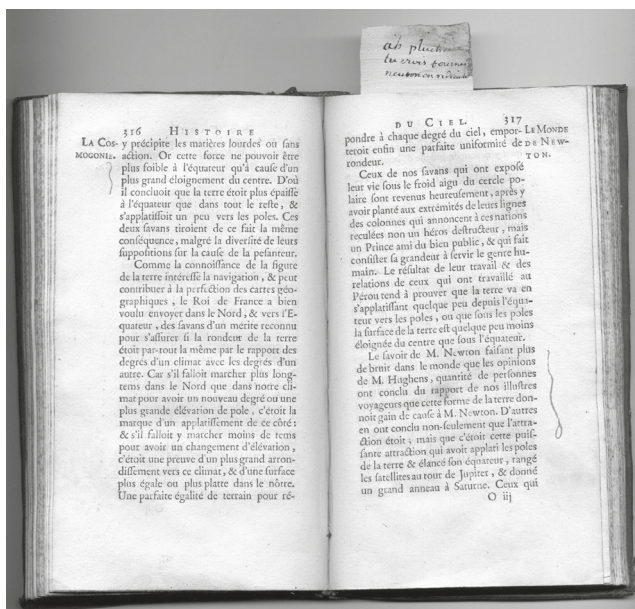 ah pluche
tu crois
neuton
316 HISTOIRE
LA COS-
MOGONIE.
y précipite les matières lourdes ou sans
action. Or cette force ne pouvoit être
plus foible à l'équateur qu'à cause d'un
plus grand éloignement du centre. D'où
il concluoit que la terre étoit plus épaisse
à l'équateur que dans tout le reste, &
s'applatissoit un peu vers les poles. Ces
deux savans tiroient de ce fait la même
conséquence, malgré la diversité de leurs
suppositions sur la cause de la pesanteur.
Comme la connoissance de la figure
de la terre intéresse la navigation, & peut
contribuer à la perfection des cartes géo-
graphiques, le Roi de France a bien
voulu envoyer dans le Nord, & vers l'E-
quateur, des savans d'un mérite reconnu
pour s'assurer si la rondeur de la terre
étoit par-tout la même par le rapport des
degrés d'un climat avec les degrés d'un
autre. Car s'il falloit marcher plus long-
tems dans le Nord que dans notre cli-
mat pour avoir un nouveau degré ou une
plus grande élévation de pole, c'étoit la
marque d'un applatissement de ce côté:
& s'il falloit y marcher moins de tems
pour avoir un changement d'élévation,
c'étoit une preuve d'un plus grand arron-
dissement vers ce climat, & d'une surface
plus égale ou plus platte dans le nôtre.
Une parfaite égalité de terrain pour ré-
DU CIEL. 317
LE MONDE
DE NEW-
TON.
pondre à chaque degré du ciel, empor-
teroit enfin une parfaite uniformité de
rondeur.
Ceux de nos savans qui ont exposé
leur vie sous le froid aigu du cercle po-
laire sont revenus heureusement, après y
avoir planté aux extrémités de leurs lignes
des colonnes qui annoncent à ces nations
reculées non un héros destructeur, mais
un Prince ami du bien public, & qui fait
consister sa grandeur à servir le genre hu-
main. Le résultat de leur travail & des
relations de ceux qui ont travaillé au
Pérou tend à prouver que la terre va en
s'applatissant quelque peu depuis l'équa-
teur vers les poles, ou que sous les poles
la surface de la terre est quelque peu moins
éloignée du centre que sous l'équateur.
Le savoir de M. Newton faisant plus
de bruit dans le monde que les opinions
de M. Hughens, quantité de personnes
ont conclu du rapport de nos illustres
voyageurs que cette forme de la terre don-
noit gain de cause à M. Newton. D'autres
en ont conclu non-seulement que l'attra-
ction étoit; mais que c'étoit cette puis-
sante attraction qui avoit applati les poles
de la terre & élancé son équateur, rangé
les satellites au tour de Jupiter, & donné
un grand anneau à Saturne. Ceux qui
O iij